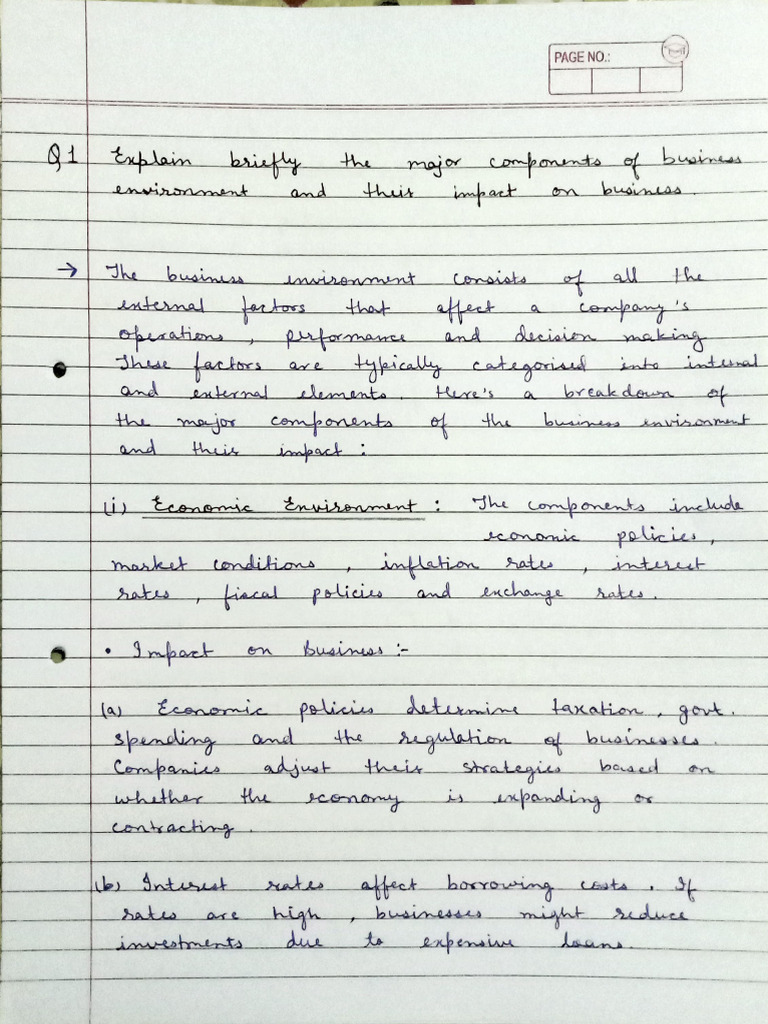 PAGE NO.:
Q1 Explain briefly the major components of business
environment and their impact on business.
→ The business environment consists of all the
external factors that affect a company's
operations, performance and decision making
These factors are typically categorised into internal
and external elements. Here's a breakdown of
the major components of the business environment
and their impact :
(i) Economic Environment : The components include
economic policies,
market conditions, inflation rates, interest
rates, fiscal policies and exchange rates.
• Impact on Business :-
(a) Economic policies determine taxation, govt.
spending and the regulation of businesses.
Companies adjust their strategies based on
whether the economy is expanding or
contracting.
(b) Interest rates affect borrowing costs. If
rates are high, businesses might reduce
investments due to expensive loans.